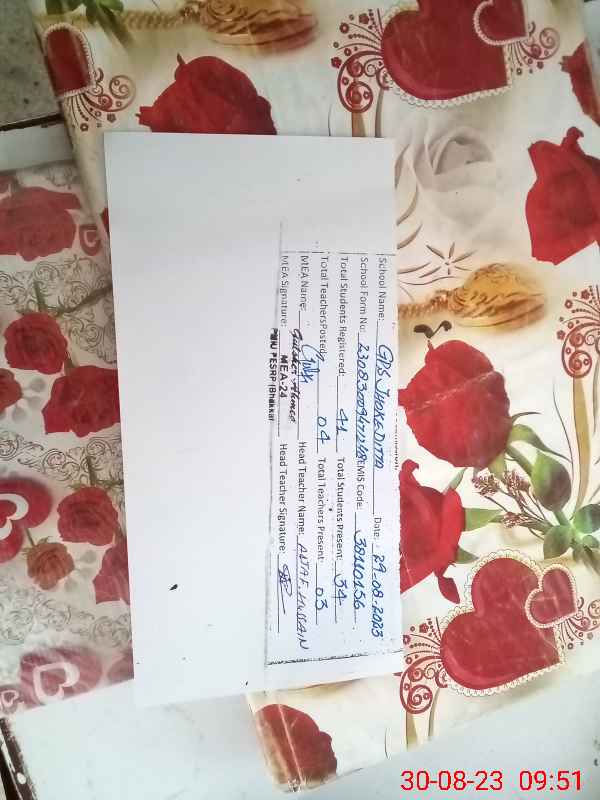 School Name: GPS JHOKE DITTA Date: 29-08-2023
School Form No: EMIS Code: 38110156
Total Students Registered: 41 Total Students Present: 34
Total TeachersPosted: 04 Total Teachers Present: 03
MEA Name: Gulsher Ahmed Head Teacher Name: ALTAF HUSSAIN
MEA Signature: MEA-24 Head Teacher Signature:
PMIU PESRP (Bhakkar
30-08-23 09:51